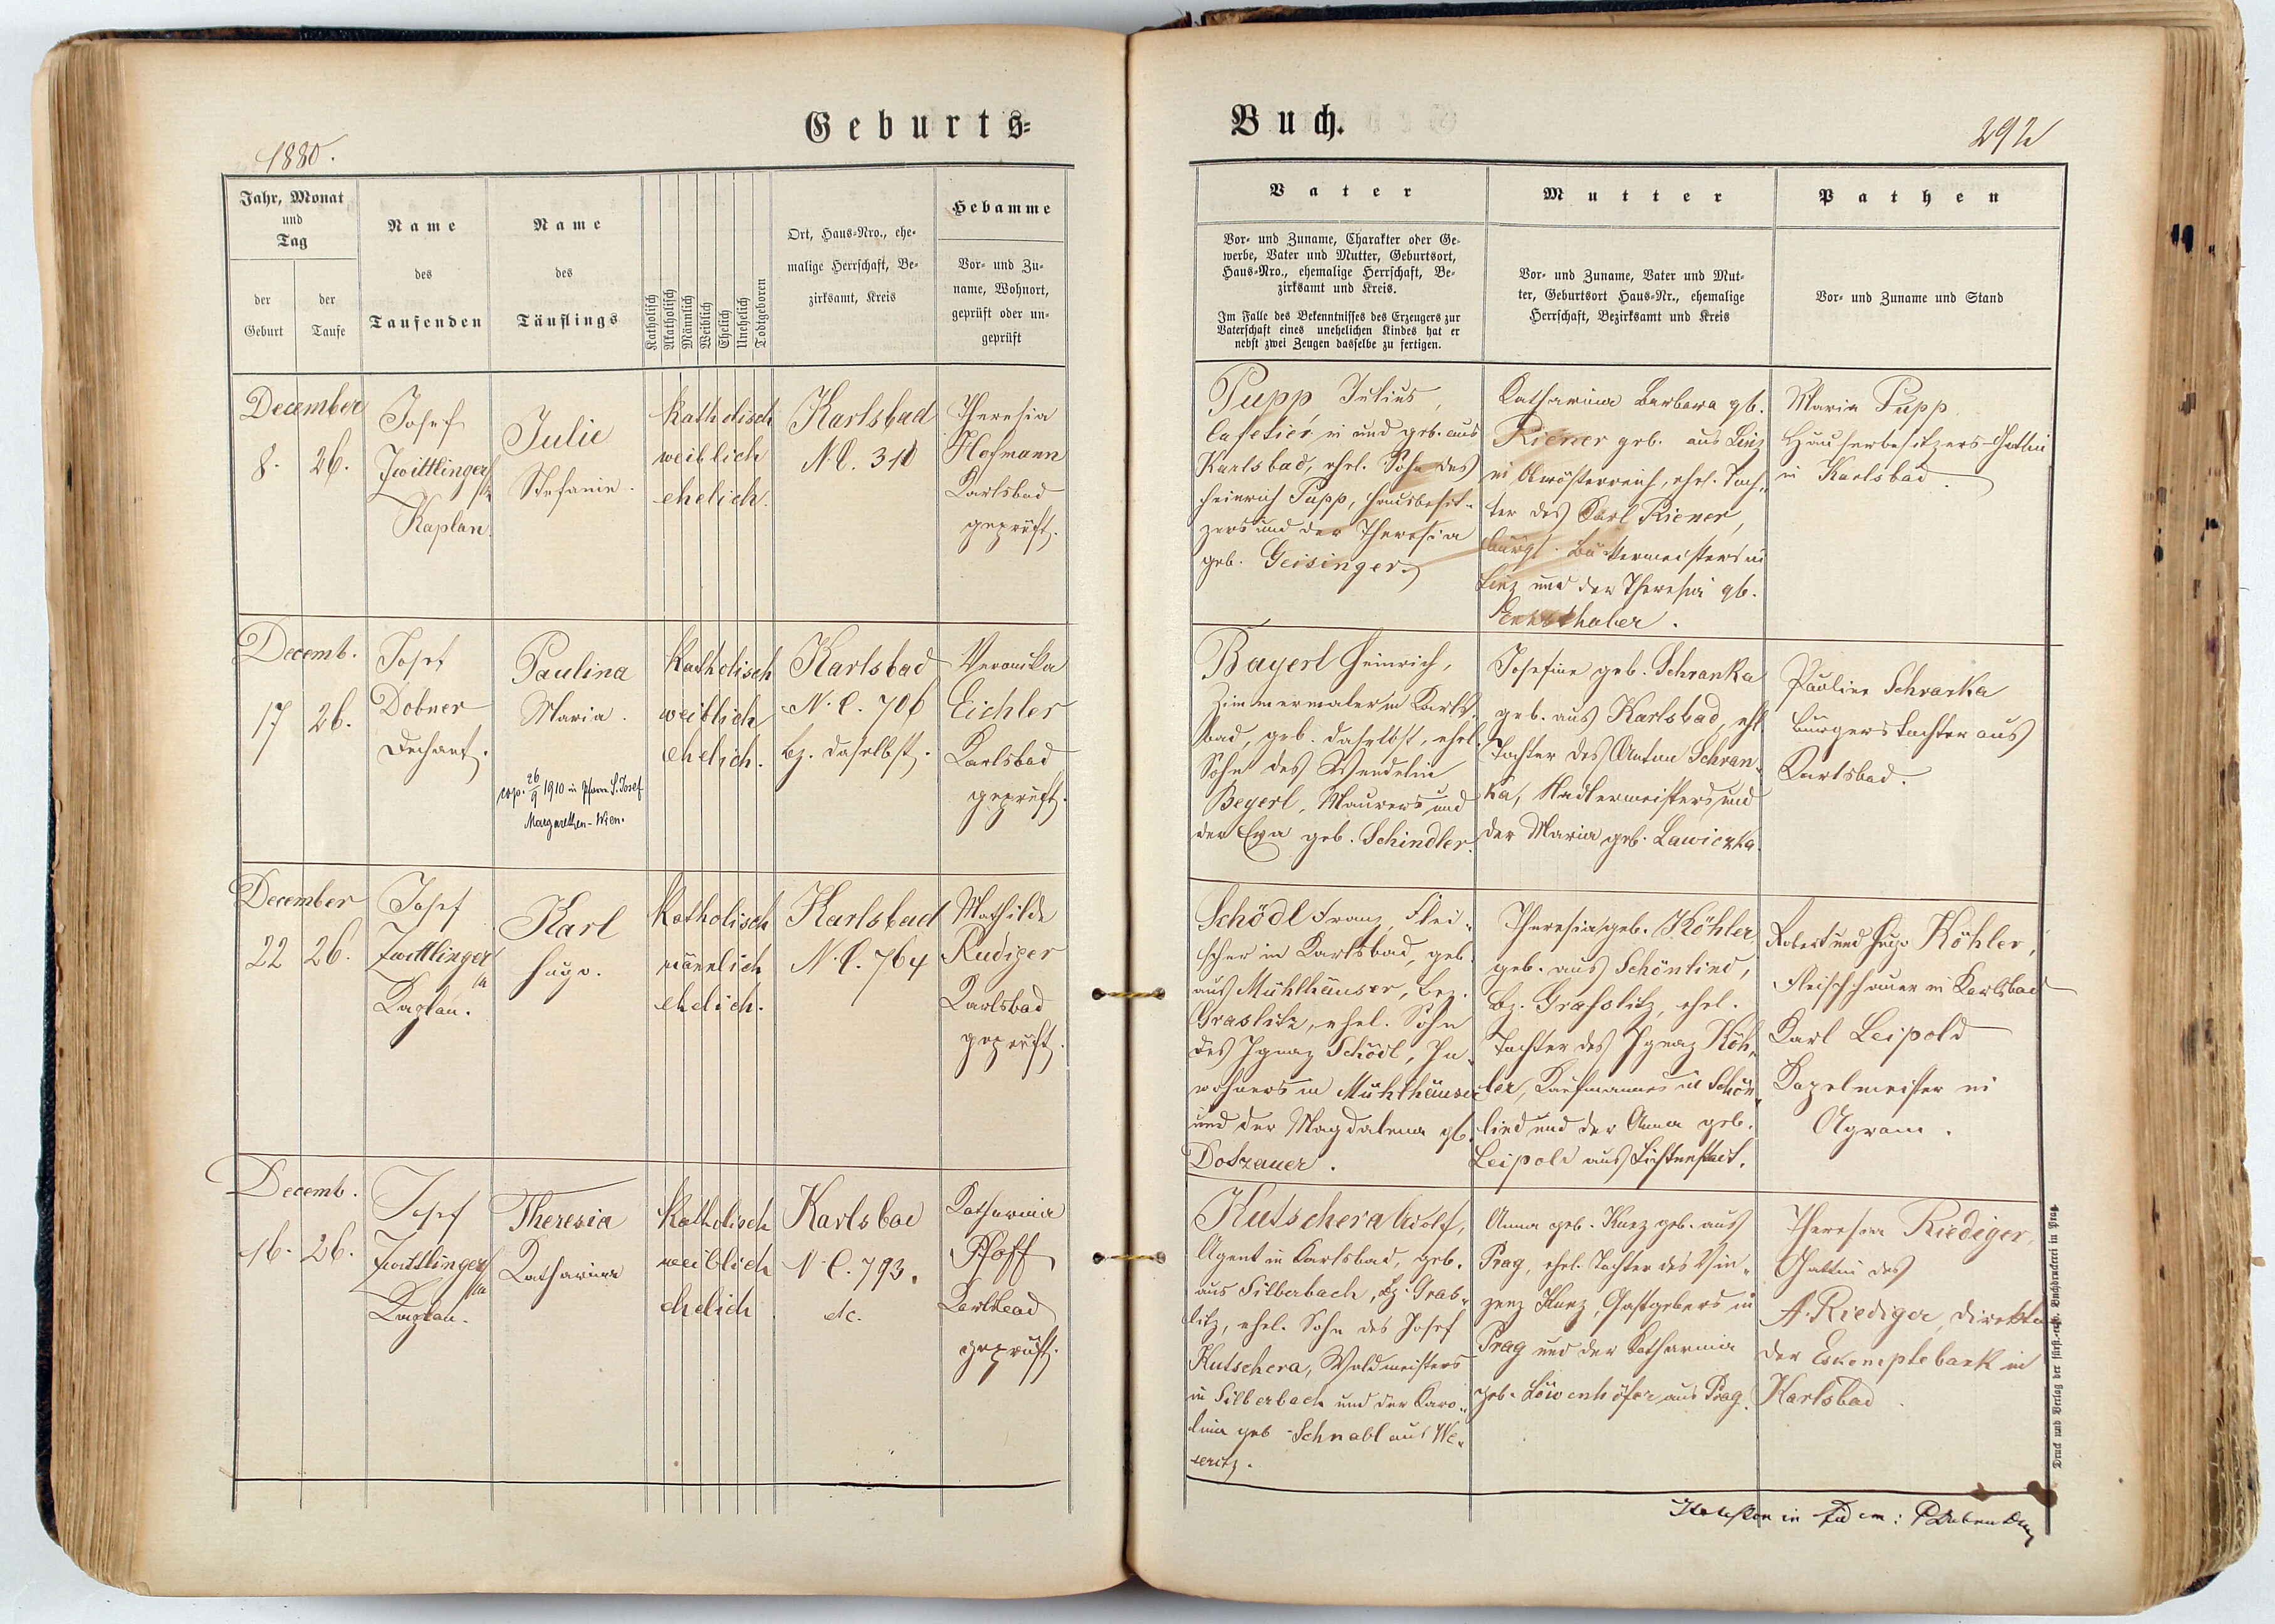 Geburts-
Buch.
1880.
292
Jahr, Monat
und
Tag
der
Geburt
der
Taufe
Name
des
Taufenden
Name
des
Täuflings
Katholisch
Akatholisch
Männlich
Weiblich
Ehelich
Unehelich
Todtgeboren
Ort, Haus-Nro., ehe-
malige Herrschaft, Be-
zirksamt, Kreis
Hebamme
Vor- und Zu-
name, Wohnort,
geprüft oder un-
geprüft
Vater
Vor- und Zuname, Charakter oder Ge-
werbe, Vater und Mutter, Geburtsort,
Haus-Nro., ehemalige Herrschaft, Be-
zirksamt und Kreis.
Im Falle des Bekenntnisses des Erzeugers zur
Vaterschaft eines unehelichen Kindes hat er
nebst zwei Zeugen dasselbe zu fertigen.
Mutter
Vor- und Zuname, Vater und Mut-
ter, Geburtsort Haus-Nr., ehemalige
Herrschaft, Bezirksamt und Kreis
Pathen
Vor- und Zuname und Stand
December
8. 26.
Josef
Zwittlinger
Kaplan.
Julie
Stefanie.
katholisch
weiblich
ehelich.
Karlsbad
N.C. 311
Theresia
Hofmann
Karlsbad
geprüft.
Pupp Julius,
Cafetier in und geb. aus
Karlsbad, ehel. Sohn des
Heinrich Pupp, Hausbesit-
zers und der Theresia
geb. Geisinger.
Catharina Barbara gb.
Riener geb. aus Linz
in Oberösterreich, ehel. Toch-
ter des Carl Riener,
bürgl. Bäckermeisters in
Linz und der Theresia gb.
Maria Pupp
Hausbesitzers-Gattin
in Karlsbad.
Decemb.
17 26.
Josef
Dobner
Dechant.
Paulina
Maria.
cop. 26/9 1910 in Pfarre S. Josef
Margarethen-Wien.
katholisch
weiblich
ehelich.
Karlsbad
N.C. 706
bz. daselbst.
Veronika
Eichler
Karlsbad
geprüft.
Bayerl Heinrich,
Zimmermaler in Karls-
bad, geb. daselbst, ehel.
Sohn des Wendelin
Beyerl, Maurers und
der Eva geb. Schindler.
Josefine geb. Schranka
geb. aus Karlsbad, ehl.
Tochter des Anton Schran-
ka, Nadlermeisters und
der Maria geb. Lawiczka.
Pauline Schranka
Bürgerstochter aus
Karlsbad.
December
22 26.
Josef
Zwittlinger
Kaplan.
Karl
Hugo.
katholisch
männlich
ehelich.
Karlsbad
N.C. 764
Mathilde
Rudiger
Karlsbad
geprüft.
Schödl Franz, Flei-
scher in Karlsbad, geb.
aus Mühlhäuser, Bez.
Graslitz, ehel. Sohn
des Ignaz Schödl, In-
wohners in Mühlhäuser
und der Magdalena gb.
Dotzauer.
Theresia geb. Köhler,
geb. aus Schönlind,
Bz. Grasslitz, ehel.
Tochter des Ignaz Köh-
ler, Kaufmannes in Schön-
lind und der Anna geb.
Leipold aus Lichtenstadt.
Robert und Hugo Köhler,
Fleischhauer in Karlsbad
Karl Leipold
Kapelmeister in
Agram.
Decemb.
16. 26.
Josef
Zwittlinger
Kaplan.
Theresia
Katharina
katholisch
weiblich
ehelich
Karlsbad
N.C. 793.
etc.
Katharina
Pfoff
Karlsbad
geprüft.
Kutschera Adolf,
Agent in Karlsbad, geb.
aus Silberbach, Bz. Gras-
litz, ehel. Sohn des Josef
Kutschera, Waldmeisters
in Silberbach und der Karo-
lina geb. Schnabl aus We-
seritz.
Anna geb. Kunz geb. aus
Prag, ehel. Tochter des Vin-
zenz Kunz, Gastgebers in
Prag und der Katharina
geb. Löwenhöfer aus Prag.
Theresia Riediger,
Gattin des
A. Riediger, Direktor
der Eskomptebank in
Karlsbad.
in fidem:
Druck und Verlag der fürst.-erzb. Buchdruckerei in Prag.